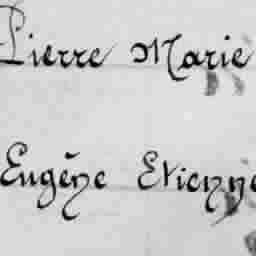 Pierre Marie
Eugène Etienne